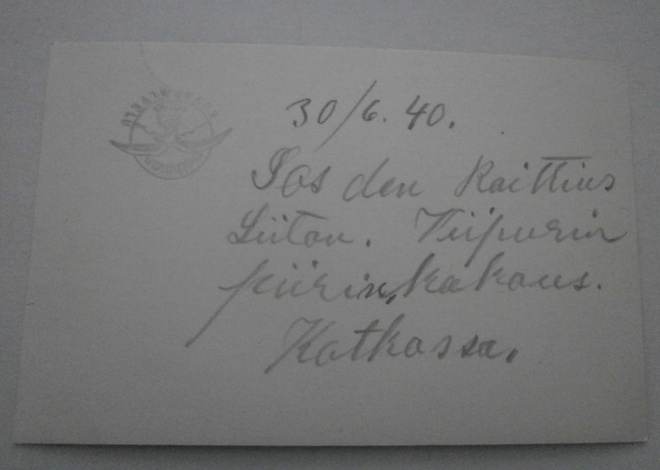 30/6. 40.
Sos den Raittius
Liiton. Viipurin
piirin, kokous.
Kotkassa.